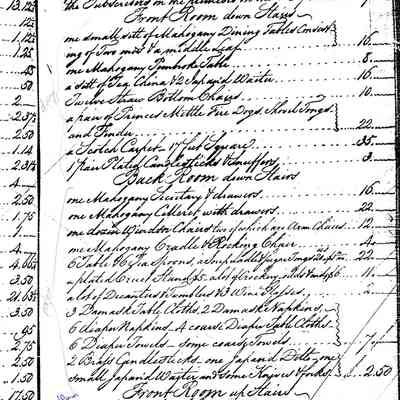 the Subscribers on the
Front Room down Stairs
one small sett of Mahogany Dining Tables Consist
ing of Two ends & a middle Leaf 16
one Mahogany Pembroke Table 8
a sett of Tea China & 2 Japan'd Waiters 16
Twelve Straw Bottom Chairs 10
a pair of Princes Mettle Fire Dogs, Shovel Tongs
and Fender 22
a Scotch Carpet 17 feet Square 35
1 pair Plated Candlesticks & snuffers 3
Back Room down Stairs
one Mahogany Secretary & drawers 16
one Mahogany Celleret with drawers 22
one dozen Windsor Chairs two of which are Arm Chairs 12
one Mahogany Cradle & Rocking Chair 4
6 Table & 6 Tea Spoons, a Soup Ladle & Sugar Tongs 22
a plated Cruet Stand 11
a lot of Decanters & Tumblers & 3 Wine Glasses 2
3 Damask Table Cloths, 2 Damask Napkins
6 diaper Napkins, 4 coarse Diaper Table Cloths
6 Diaper Towels some coarse Towels 7
2 Brass Candlesticks, one Japan'd Ditto, one
small Japan'd Waiter and some Knives & forks 2.50
Front Room up Stairs
13.125
1.125
1.25
.45
.50
2
2.375
2.50
1.14
4
2.50
1.75
4
3.50
3.50
.95
2.75
2.50
1.50
17.50